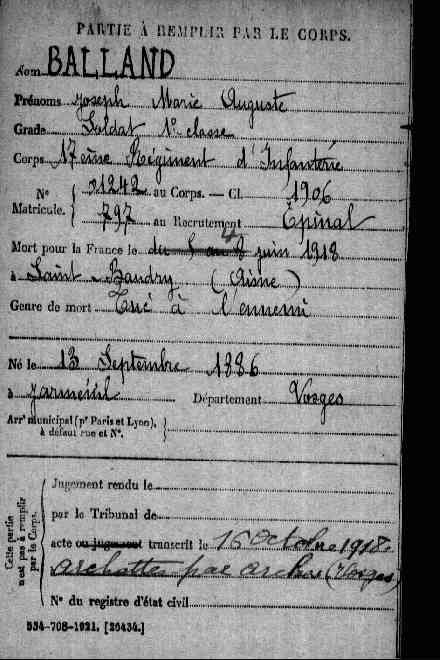 PARTIE À REMPLIR PAR LE CORPS.
Nom BALLAND
Prénoms Joseph Marie Auguste
Grade Soldat 1e classe
Corps 17ème Régiment d'Infanterie
N° 21242 au Corps. — Cl. 1906
Matricule. 797 au Recrutement Épinal
Mort pour la France le du 5 au 8 4 juin 1918
à Saint-Bandry (Aisne)
Genre de mort Tué à l'ennemi
Né le 13 Septembre 1886
à Jarménil Département Vosges
Arrt municipal (pr Paris et Lyon), à défaut rue et N°.
Cette partie n'est pas à remplir par le Corps.
Jugement rendu le
par le Tribunal de
acte ou jugement transcrit le 16 Octobre 1918.
Archettes par Arches (Vosges)
N° du registre d'état civil
534-708-1921. [26434.]